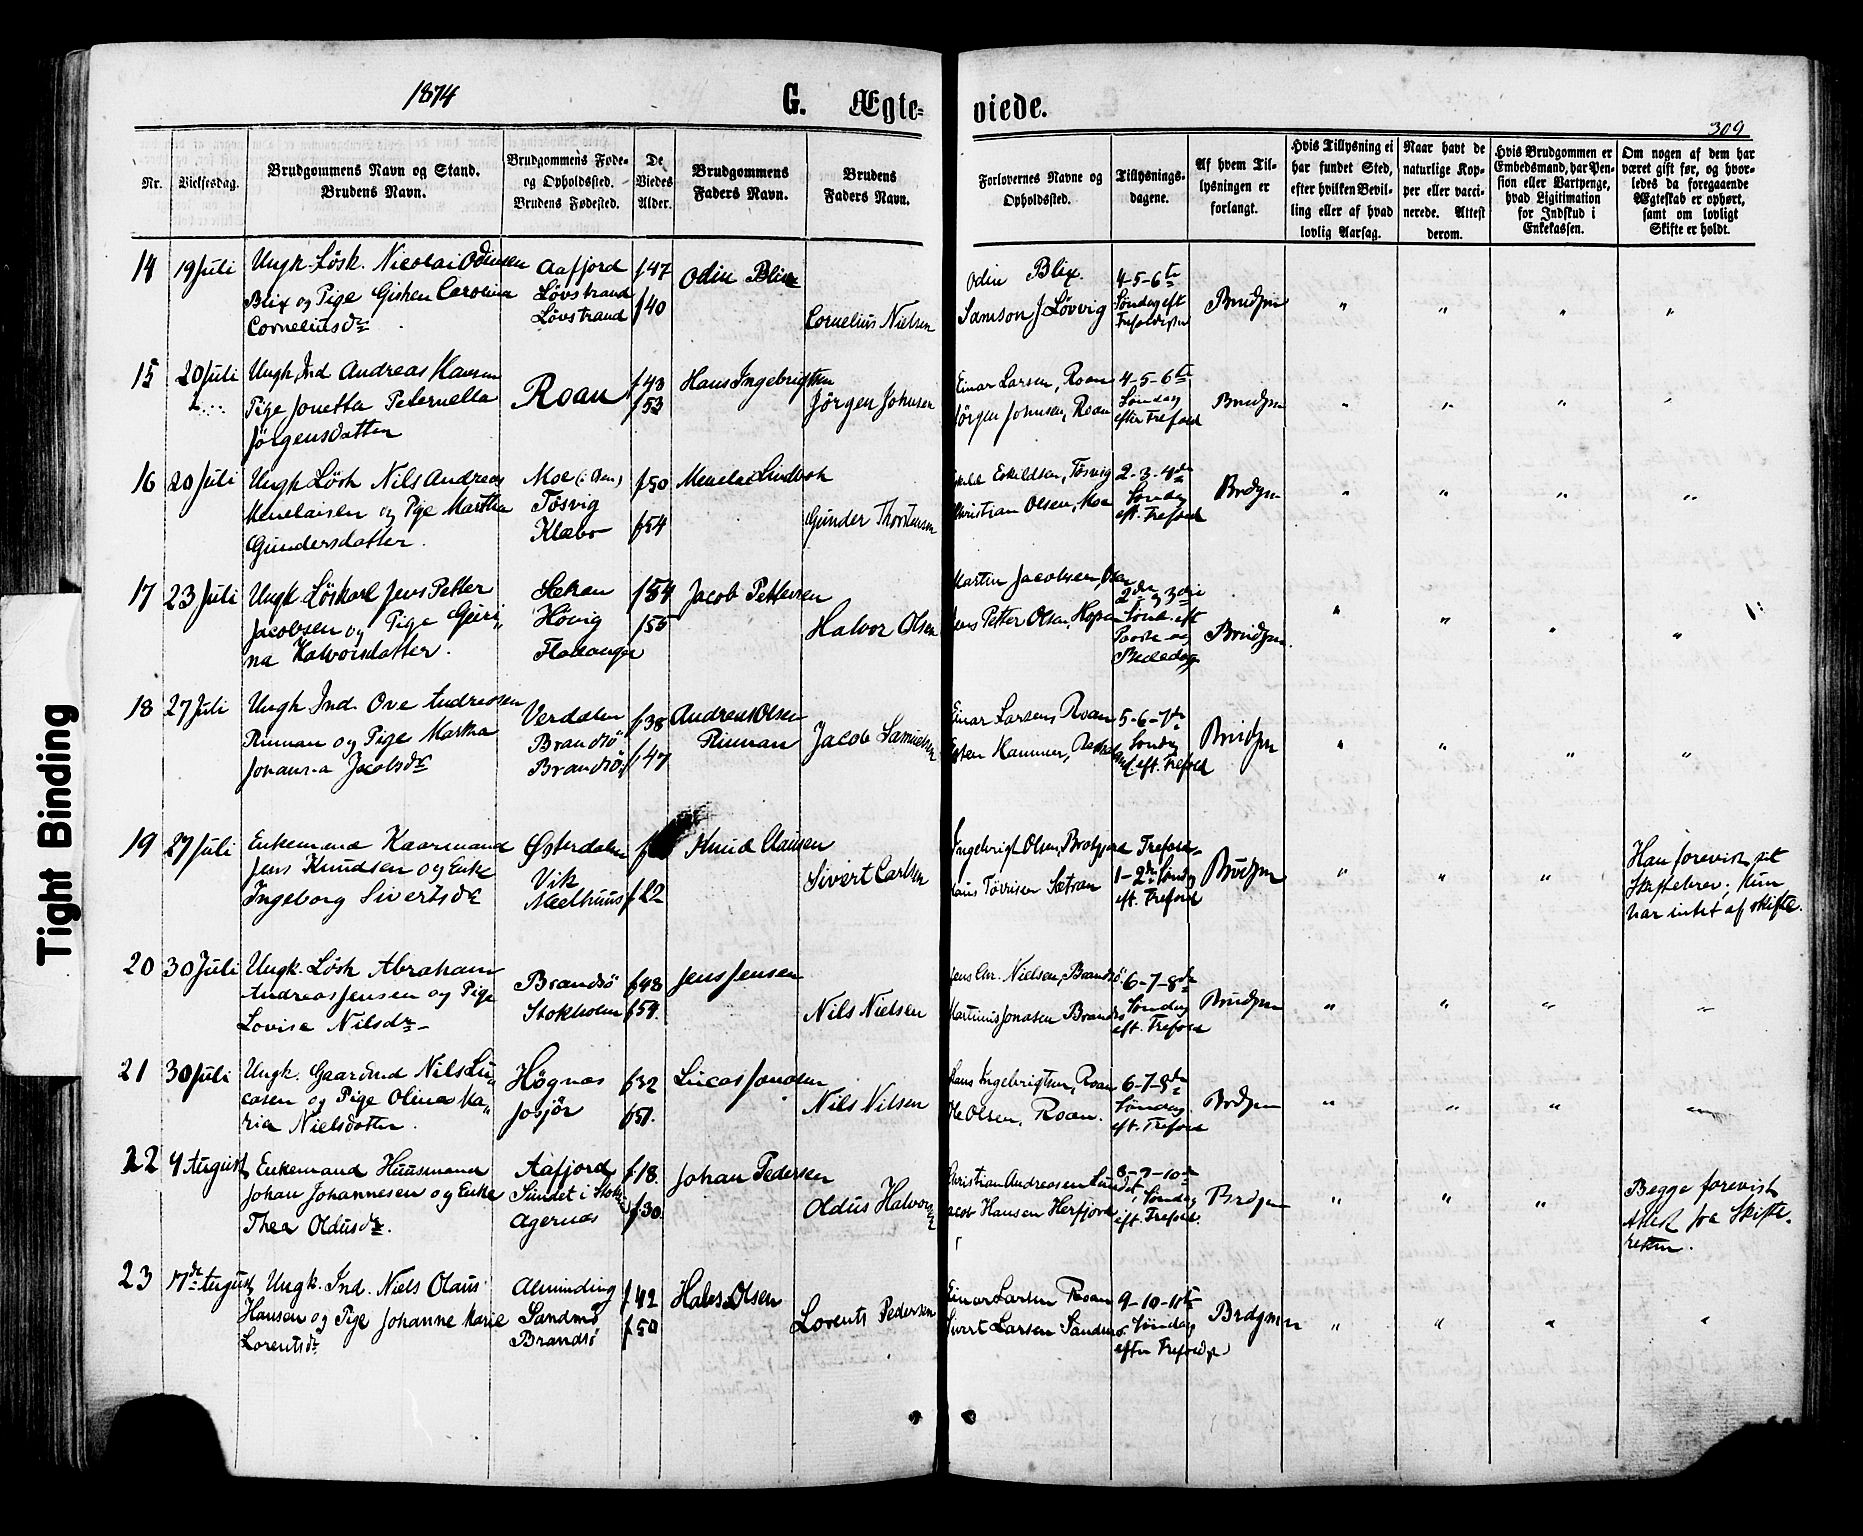 1874
G. Ægte-
viede.
309
Nr.
Vielsesdag.
Brudgommens Navn og Stand.
Brudens Navn.
Brudgommens Føde-
og Opholdssted.
Brudens Fødested.
De
Viedes
Alder.
Brudgommens
Faders Navn.
Brudens
Faders Navn.
Forlovernes Navne og
Opholdssted.
Tillysnings-
dagene.
Af hvem Til-
lysningen er
forlangt.
Hvis Tillysning ei
har fundet Sted,
efter hvilken Bevil-
ling eller af hvad
lovlig Aarsag.
Naar havt de
naturlige Kop-
per eller vacci-
nerede. Attest
derom.
Hvis Brudgommen er
Embedsmand, har Pen-
sion eller Vartpenge,
hvad Ligitimation
for Indskud i
Enkekassen.
Om nogen af dem har
været gift før, og hvor-
ledes da foregaaende
Ægteskab er ophørt,
samt om lovligt
Skifte er holdt.
14 19 Juli Ungk. Løsk. Nicolai Odinsen
Blix og Pige Gisken Carolina
Corneliusdr
Aafjord
Løvstrand
Løvstrand
f 47
f 40
Odin Blix
Cornelius Nielsen
Odin Blix.
Samson J Løvvig
4-5-6te
Søndag eft
Brudgm
" " " "
15 20 Juli Ungk Ind Andreas Hansen
Pige Jonetta Peternella
Jörgensdatter
Roan
f 43
f 53
Hans Ingebrigtsen
Jörgen Johnsen
Einar Larsen, Roan
Jörgen Johnsen, Roan
4-5-6te
Søndag
efter Trefold
Brudgm
" " " "
16 20 Juli Ungk Løsk Nils Andreas
Menelaisen og Pige Martha
Gundersdatter.
Moe
Tösvig
Klæbo
f 50
f 54
Gunder Thorstensen
Eskild Eskildsen, Tösvig
Christian Olsen, Moe
2-3-4de
Søndag
eft. Trefold
Brdgm
" " " "
17 23 Juli Ungk Løskarl Jens Petter
Jacobsen og Pige Guri-
na Halvorsdatter.
Hövig
Fladanger
f 54
f 55
Jacob Pettersen
Halvor Olsen
Martin Jacobsen,
Jens Petter Olsen, Hopen
2den og 3die
Sønd. eft
Paaske og
Bededag
Brudgm.
" " " "
18 27 Juli Ungk Ind. Ove Andreasen
Rinnan og Pige Martha
Johanna Jacobsdr
Verdalen
Brandsö
Brandsö
f 38
f 47
Andreas Olsen
Rinnan
Jacob Samuelsen
Einar Larsen, Roan
5-6-7de
Søndag
eft. Trefold
Brudgm
" " " "
19 27 Juli Enkemand Kaarmand
Jens Knudsen og Enke
Ingeborg Sivertsdr
Østerdalen
Vik
Meelhuus
f 22
Knud Clausen
Sivert Carlsen
Ingebrigt Olsen,
Trefold-
1-2den Søndag
eft. Trefold
Brudgm
" " "
Han forevist sit
Skiftebrev; Hun
har intet af skifte.
20 30 Juli Ungk. Løsk Abraham
Andreas Jensen og Pige
Lovise Nilsdr-
Brandsö
Stokholm
f 48
f 54.
Jens Jensen
Nils Nielsen
Jens Chr. Nielsen, Brandsö.
Martinus Jonasen Brandsö
6-7-8de
Søndag
eft. Trefold
Brudgm
" " " "
21 30 Juli Ungk. Gaardmd Nils Lu-
casen og Pige Olina Ma-
ria Nielsdatter.
Högnæs
Josjör
f 32
f 51.
Lucas Jonasen
Nils Nilsen
Hans Ingebrigtsen, Roan
Ole Olsen, Roan.
6-7-8de
Søndag.
eft. Trefold
Brdgm
" " " "
22 4 August Enkemand Huusmand
Johan Johannesen og Enke
Thea Oldusdr.
Aafjord
Sundet i Stoksund
Agernæs
f 18.
f 30.
Johan Pedersen
Oldus Halvorsen
Christian Andreasen Sundet
Jacob Hansen Herfjord
8-9-10de
Søndag
eft. Trefold.
Brdgm
" " "
Begge forevist
Attest fra Skifte-
retten.
23 17de August Ungk. Ind. Niels Olaus
Hansen og Pige Johanne Marie
Lorentsdr
Alminding
Sandmo
Brandsö
f 42
f 50
Hans Olsen
Lorents Pedersen
Einar Larsen Roan
Sivert Larsen Sandmo
9-10-11te
Søndag
efter Trefoldg
Brdgmn
" " " "
Tight Binding